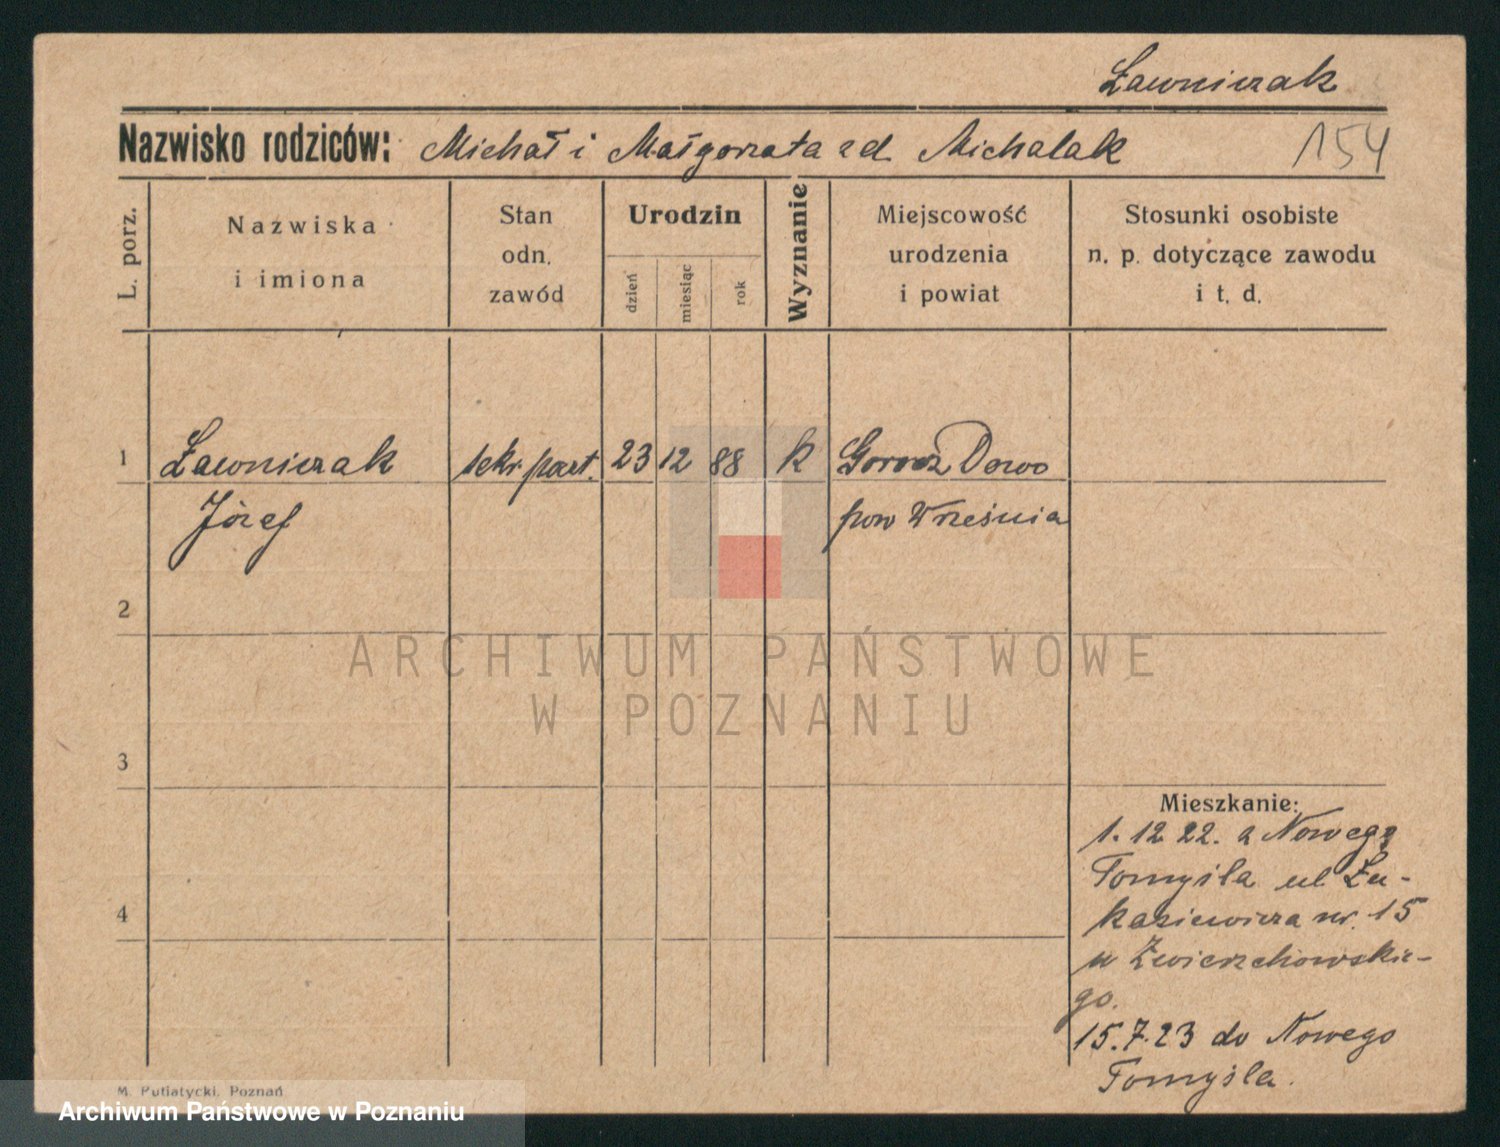 Ławniczak
Nazwisko rodziców: Michał i Małgorzata zd. Michalak
154
L. porz.
Nazwiska
i imiona
Stan
odn.
zawód
Urodzin
dzień
miesiąc
rok
Wyznanie
Miejscowość
urodzenia
i powiat
Stosunki osobiste
n. p. dotyczące zawodu
i t. d.
1 Ławniczak sekr. part. 23 12 88 k
Józef pow Września
2
3
4
ARCHIWUM PAŃSTWOWE
W POZNANIU
Mieszkanie:
1. 12 22. z Nowego
Tomyśla ul Łu-
kasiewicza nr. 15
u Zwierzchowskie-
go.
15.7.23 do Nowego
Tomyśla.
M. Putiatycki, Poznań
Archiwum Państwowe w Poznaniu